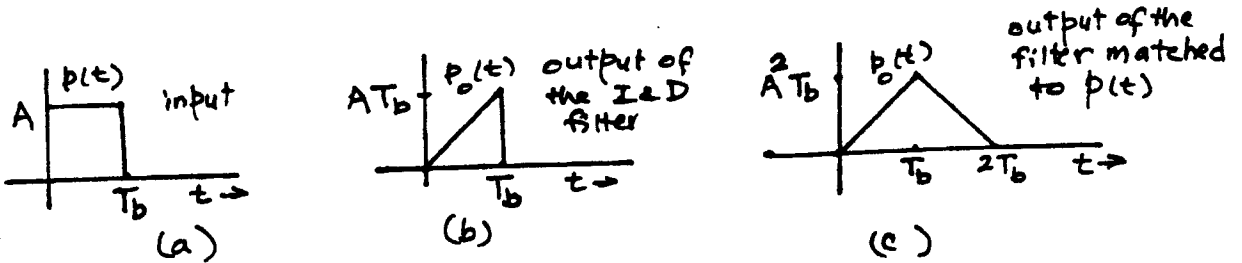 A
p(t)
input
T_b
t→
(a)
AT_b
p_o(t)
output of
the I&D
filter
T_b
t→
(b)
A²T_b
p_o(t)
output of the
filter matched
to p(t)
T_b
2T_b
t→
(c)